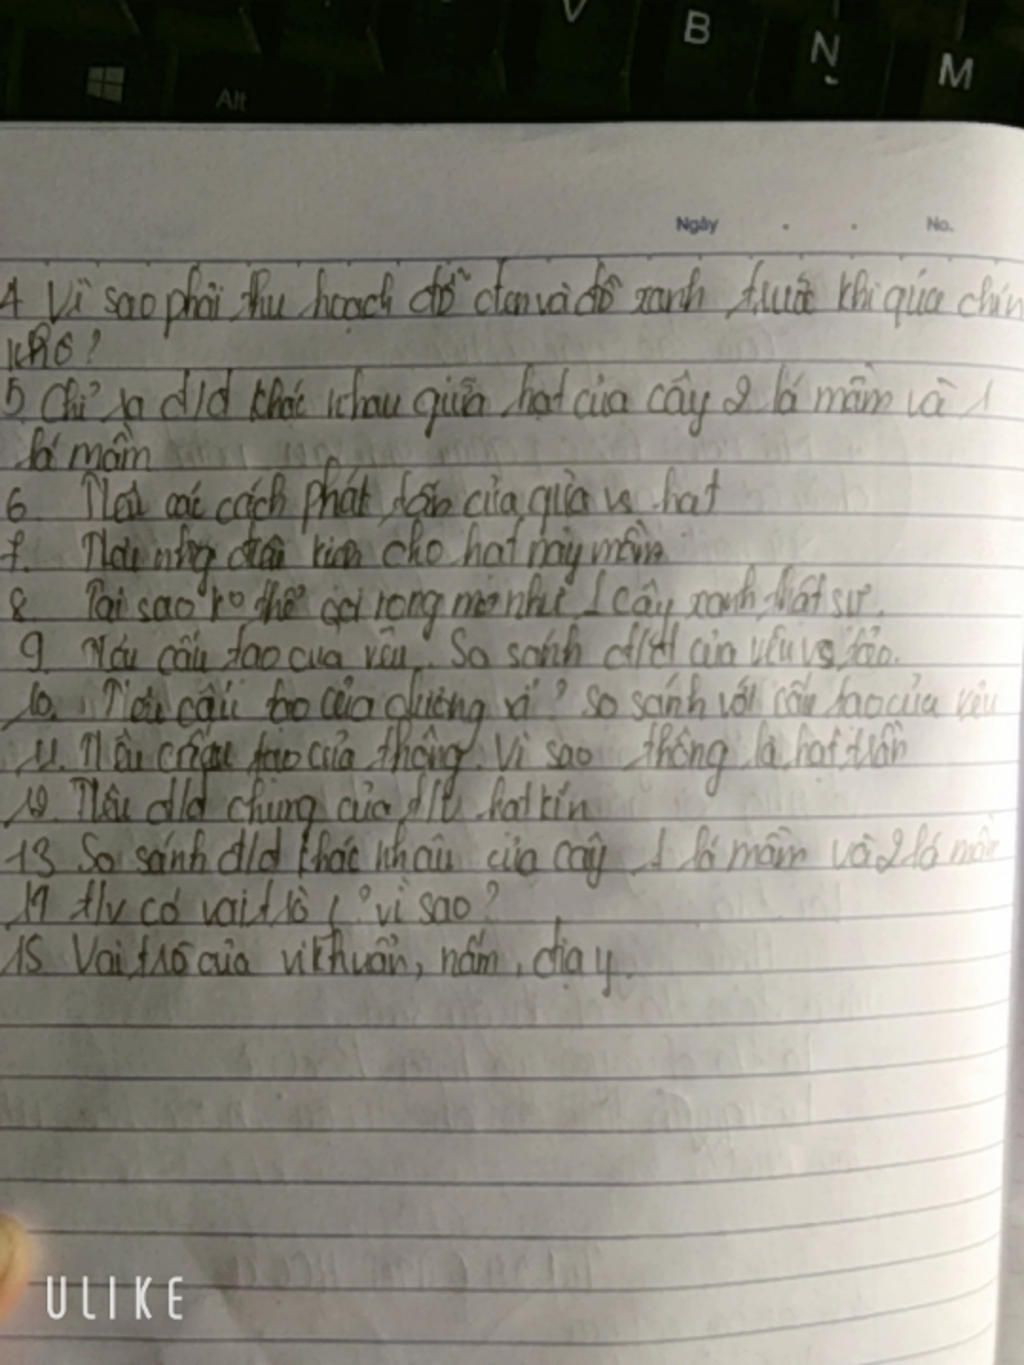 V B N M
Alt
Ngày No.
4 Vì sao phải thu hoạch đỗ đen và đỗ xanh trước khi quả chín
khô?
5 Chỉ ra đ/đ khác nhau giữa hạt của cây 2 lá mầm và 1
lá mầm
6 Nêu các cách phát tán của quả vs hạt
7. Nêu những điều kiện cho hạt nảy mầm
8 Tại sao ko thể coi rong mơ như 1 cây xanh thật sự.
9. Nêu cấu tạo của rêu. So sánh đ/đ của rêu vs tảo.
10. Nêu cấu tạo của dương xỉ? so sánh với cấu tạo của rêu
11. Nêu cấu tạo của thông. Vì sao thông là hạt trần
12. Nêu đ/đ chung của t/v hạt kín
13 So sánh đ/đ khác nhau của cây 1 lá mầm và 2 lá mầm
14 t/v có vai trò vì sao?
15 Vai trò của vi khuẩn, nấm, địa y.
ULIKE